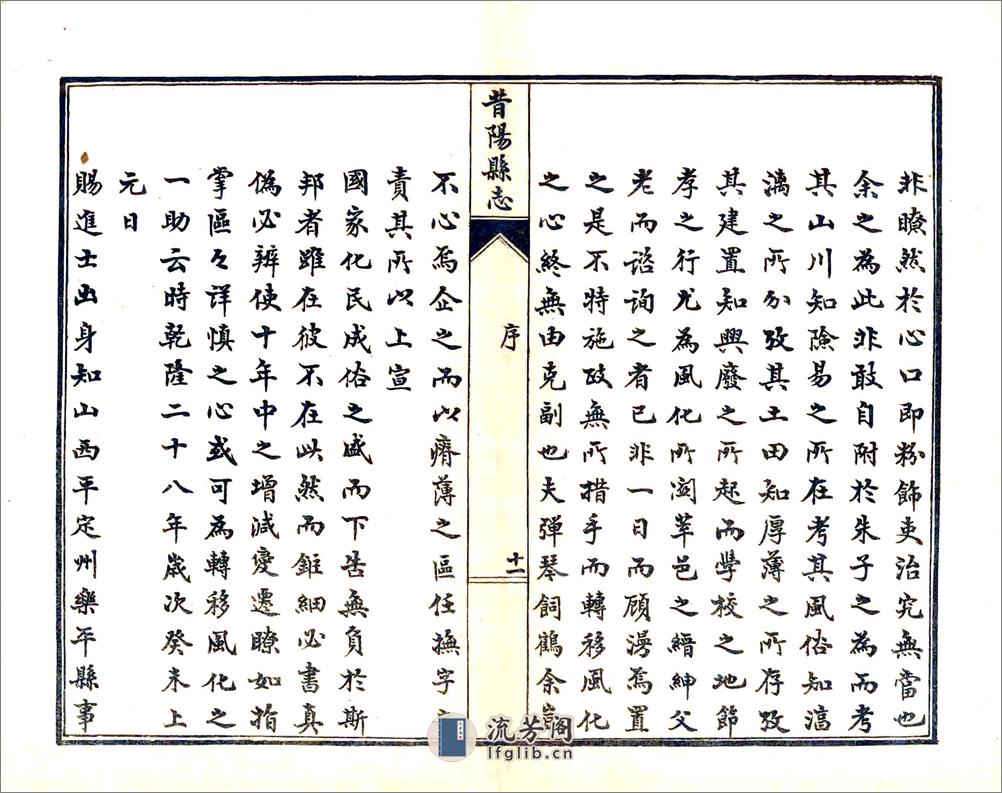 非瞭然於心口即粉飾吏治究無當也
余之為此非敢自附於朱子之為而考
其山川知險易之所在考其風俗知滈
漓之所分攷其土田知厚薄之所存攷
其建置知興廢之所起而學校之地節
孝之行尤為風化所關萃邑之縉紳父
老而諮詢之者已非一日而顧漫焉置
之是不特施政無所措手而轉移風化
之心終無由克副也夫彈琴飼鶴余豈
昔陽縣志
序
十一
不心焉企之而以瘠薄之區任撫字之
責其所以上宣
國家化民成俗之盛而下告無負於斯
邦者雖在彼不在此然而鉅細必書真
偽必辨使十年中之增減變遷瞭如指
掌區々詳慎之心或可為轉移風化之
一助云時乾隆二十八年歲次癸未上
元日
賜進士出身知山西平定州樂平縣事
流芳閣
lfglib.cn